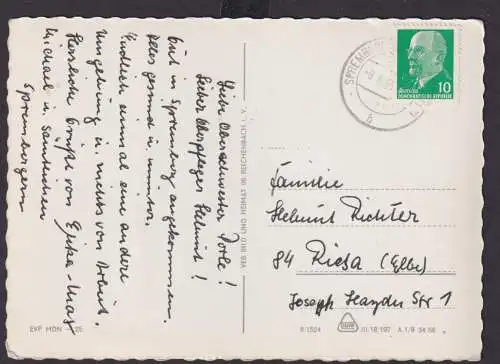 Liebe Oberschwester Dorle!
Lieber Oberpfleger Helmut!
Gut in Spremberg angekommen.
Alles gesund u. munter.
Endlich einmal eine andere
Umgebung u. nichts von Arbeit.
Herzliche Grüße von Erika-Maus
Michael u. sämtlichen
Sprembergern
VEB BILD UND HEIMAT REICHENBACH I. V.
SPREMBERG
b
10
DEUTSCHE DEMOKRATISCHE REPUBLIK
Familie
Helmut Richter
84 Riesa (Elbe)
Joseph Haydn Str 1
EVP MDN -.25
III/18/197 A 1/B 34/66